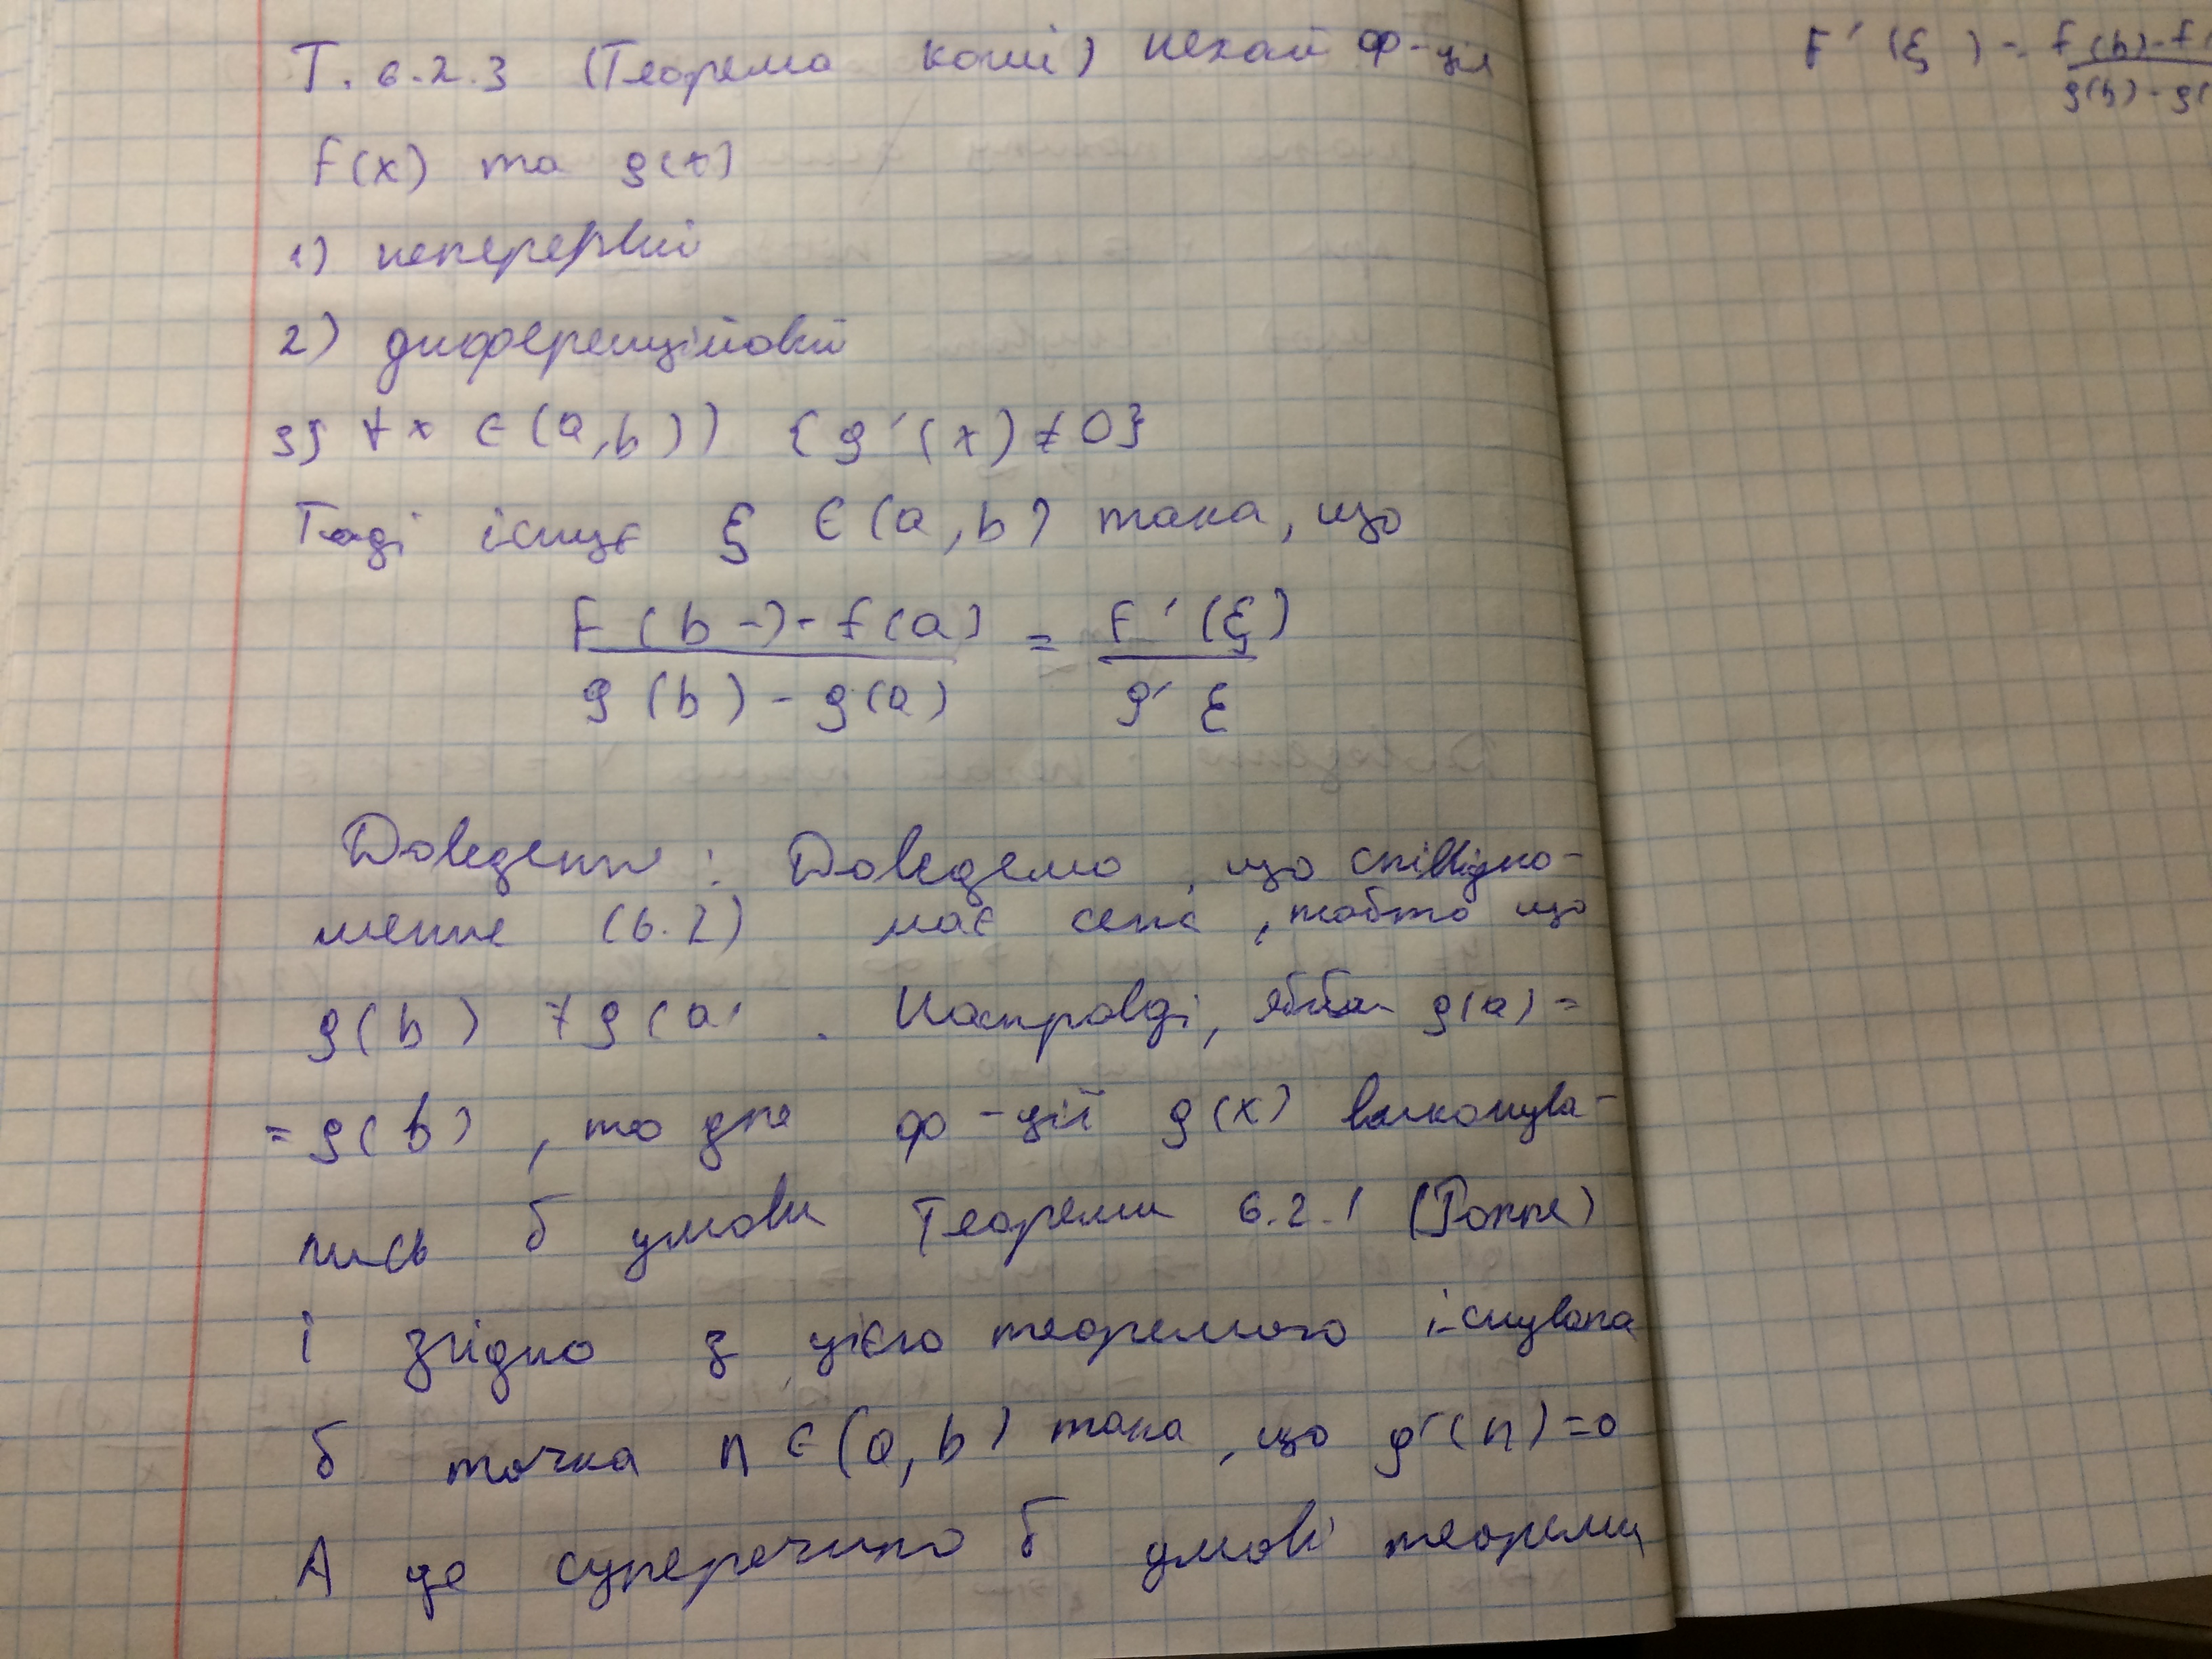 Т. 6.2.3 (Теорема Коші) Нехай ф-ції
f(x) та g(x)
1) неперервні
2) диференційовні
3) ∀ x ∈ (a, b)) {g'(x) ≠ 0}
Тоді існує ξ ∈ (a, b) така, що
F(b-)-f(a) = F'(ξ)
g(b) - g(a) g' ξ
Доведення: Доведемо що спiввідно-
шення (6.2) має сенс, тобто що
g(b) ≠ g(a) . Насправді, якби g(a) =
= g(b), то для ф-цій g(x) виконува-
лись б умови Теореми 6.2.1 (Ролля)
і згідно з цією теоремою існувала
б точка n ∈ (a, b) така, що g'(n)=0
А це суперечило б умові теореми
F'(ξ) - f(b)-f
g(b)-g(